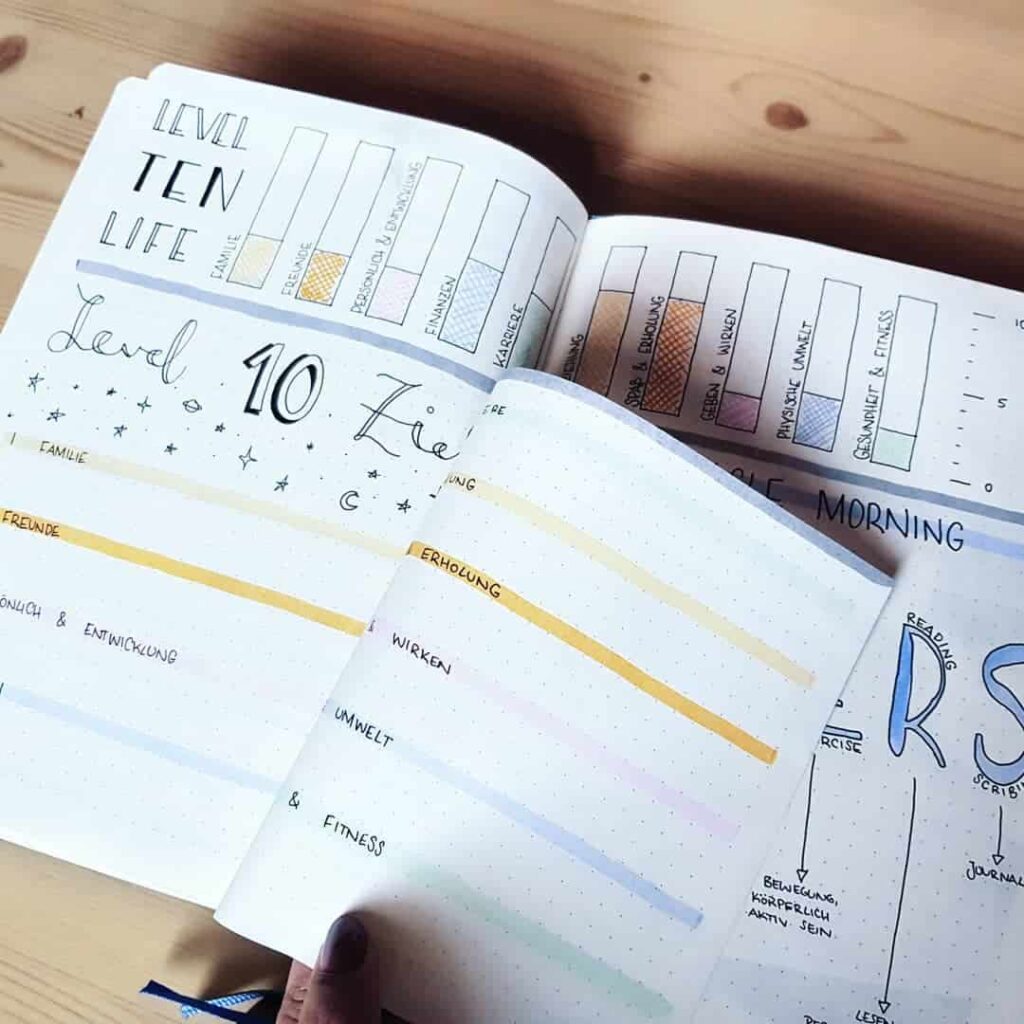 LEVEL
TEN
LIFE
FAMILIE
FREUNDE
PERSÖNLICH & ENTWICKLUNG
FINANZEN
KARRIERE
SPAß & ERHOLUNG
GEBEN & WIRKEN
PHYSISCHE UMWELT
GESUNDHEIT & FITNESS
10
5
0
Level 10 Zie
FAMILIE
FREUNDE
ÖNLICH & ENTWICKLUNG
ERE
UNG
ERHOLUNG
& WIRKEN
UMWELT
& FITNESS
MORNING
READING
R S
RCISE
SCRIBI
BEWEGUNG,
KÖRPERLICH
AKTIV SEIN.
JOURNAL
LESEN